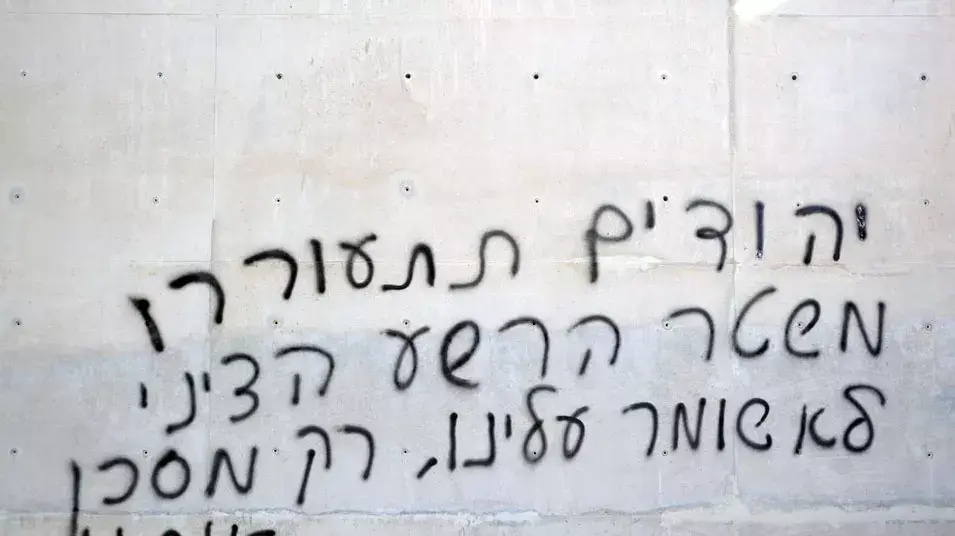 יהודים תתעוררו
משטר הרשע הציני
לא שומר עלינו, רק מסכן